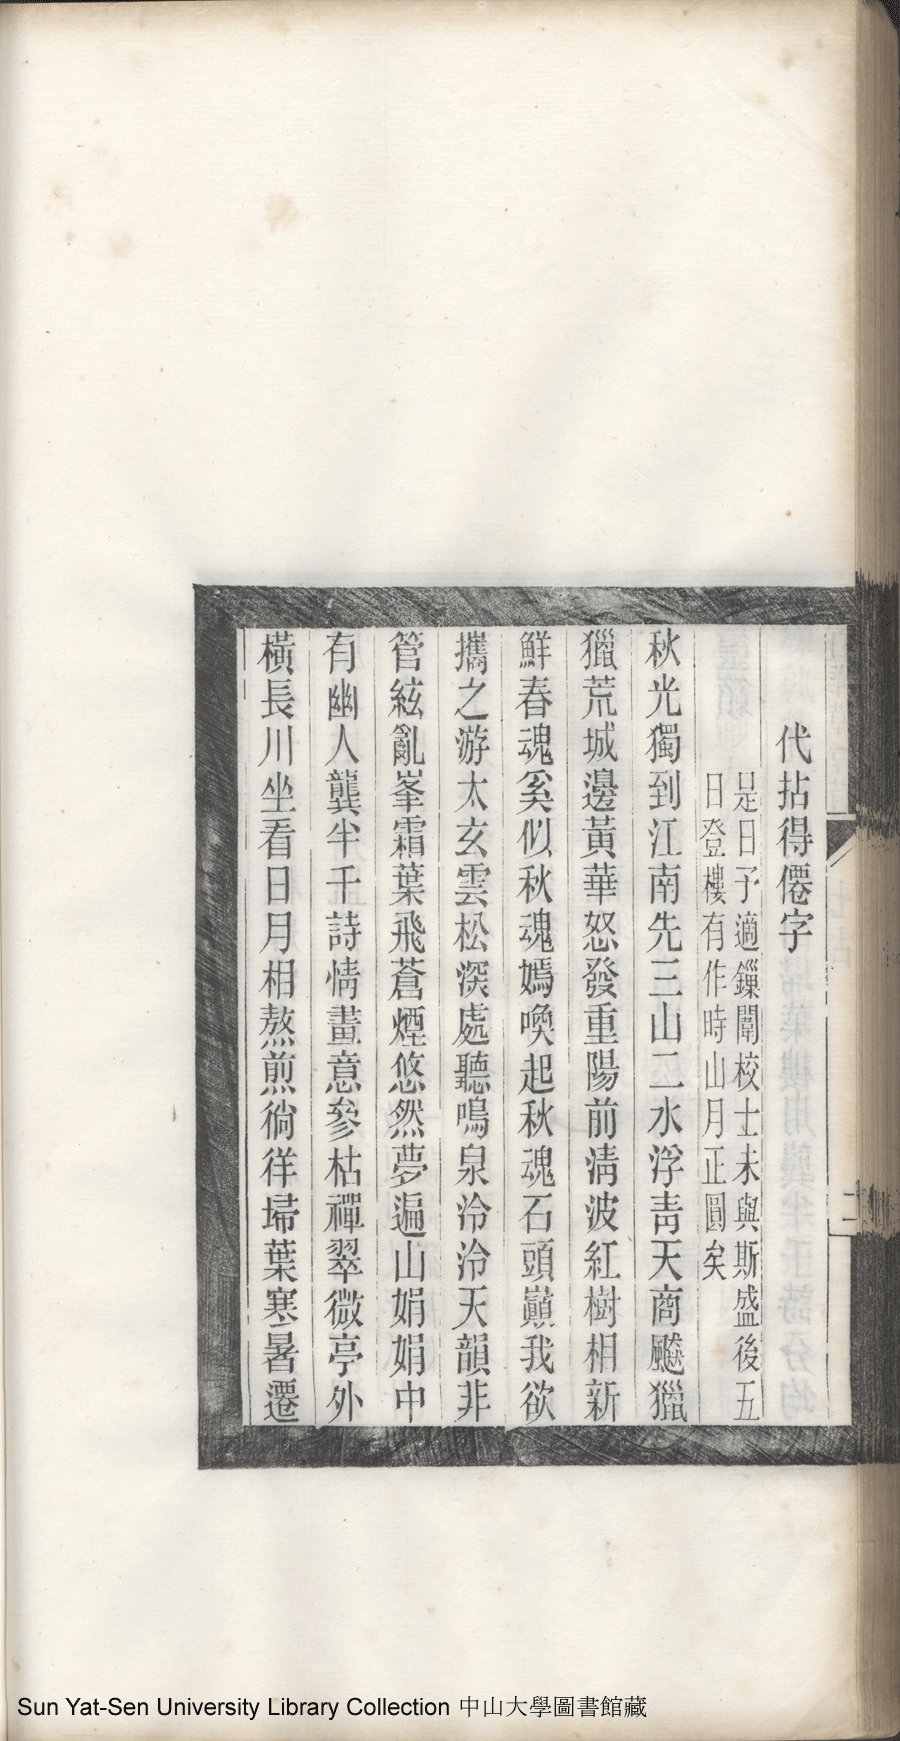 代拈得僊字
是日予適鏁闈校士未與斯盛後五
日登樓有作時山月正圓矣
秋光獨到江南先三山二水浮靑天商飈獵
獵荒城邊黃華怒發重陽前淸波紅樹相新
鮮春魂奚似秋魂嫣喚起秋魂石頭巔我欲
攜之游太玄雲松深處聽鳴泉泠泠天韻非
管絃亂峯霜葉飛蒼煙悠然夢遍山娟娟中
有幽人龔半千詩情畫意參枯禪翠微亭外
橫長川坐看日月相熬煎徜徉埽葉寒暑遷
Sun Yat-Sen University Library Collection 中山大學圖書館藏